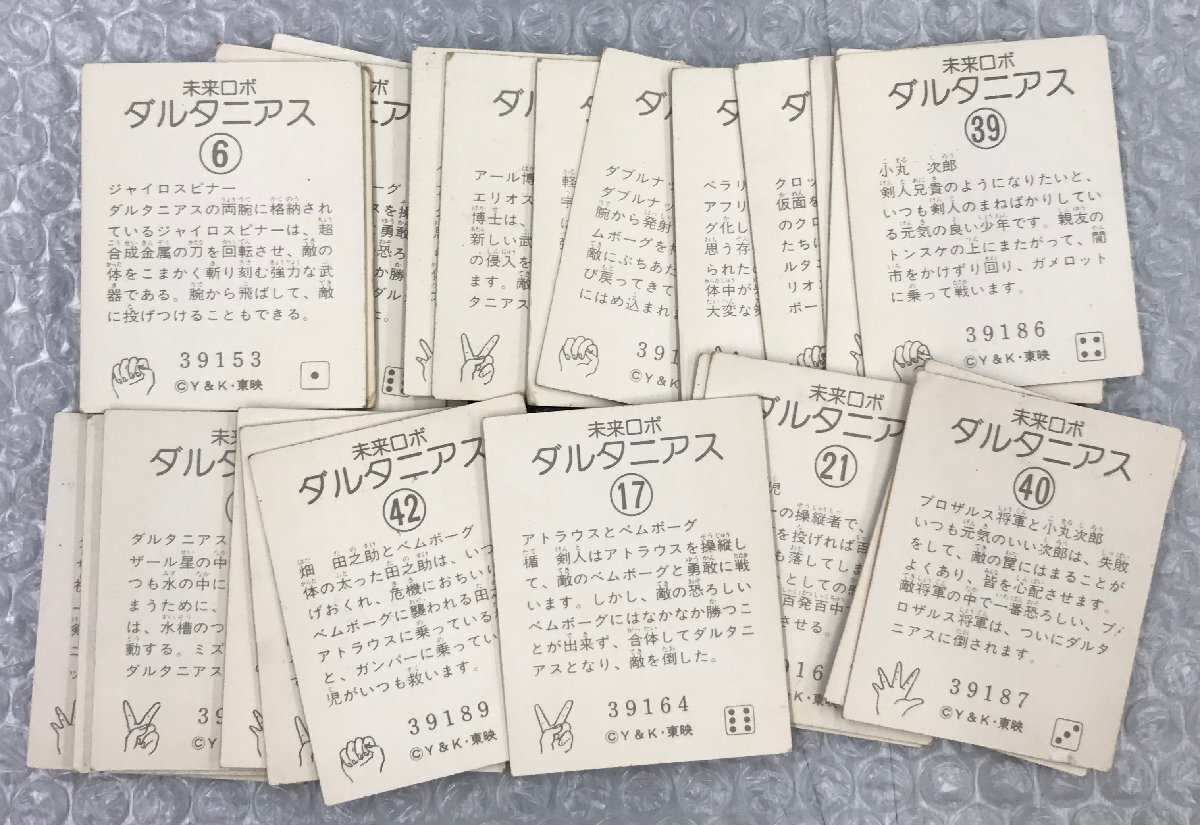 未来ロボ
ダルタニアス
6
ジャイロスピナー
ダルタニアスの両腕に格納され
ているジャイロスピナーは、超
合成金属の刀を回転させ、敵の
体をこまかく斬り刻む強力な武
器である。腕から飛ばして、敵
に投げつけることもできる。
39153
©Y&K・東映
アール博
エリオス
博士は、
新しい武
の侵入を
ます。敵
タニアス
ダブルナッ
ダブルナッ
腕から発射
ムボーグを
敵にぶちあた
び戻ってきて
にはめ込まれ
391
©Y&K
ベラリ
アフリ
グ化し
思う存
られた
体中が
大変な
クロッ
仮面を
のクロ
たちに
ルタニ
リオン
ボー
未来ロボ
ダルタニアス
39
小丸 次郎
剣人兄貴のようになりたいと、
いつも剣人のまねばかりしてい
る元気の良い少年です。親友の
トンスケの上にまたがって、闇
市をかけずり回り、ガメロット
に乗って戦います。
39186
©Y&K・東映
未来ロ
ダルタ
ダルタニアス
ザール星の中
つも水の中に
まうために、
は、水槽のつ
動する。ミズ
ダルタニアス
39
©Y
未来ロボ
ダルタニアス
42
畑 田之助とベムボーグ
体の太った田之助は、いつ
げおくれ、危機におちい
ベムボーグに襲われる田
アトラウスに乗っている
と、ガンパーに乗ってい
児がいつも救います。
39189
©Y&K・東映
未来ロボ
ダルタニアス
17
アトラウスとベムボーグ
楯 剣人はアトラウスを操縦し
て、敵のベムボーグと勇敢に戦
います。しかし、敵の恐ろしい
ベムボーグにはなかなか勝つこ
とが出来ず、合体してダルタニ
アスとなり、敵を倒した。
39164
©Y&K・東映
未来ロボ
ダルタニア
21
児
ーの操縦者で、
を投げれば百
も落してしま
としての
百発百中
させる。
3916
&K・東映
未来ロボ
ダルタニアス
40
プロザルス将軍と小丸次郎
いつも元気のいい次郎は、失敗
をして、敵の罠にはまることが
よくあり、皆を心配させます。
敵将軍の中で一番恐ろしい、プ
ロザルス将軍は、ついにダルタ
ニアスに倒されます。
39187
©Y&K・東映